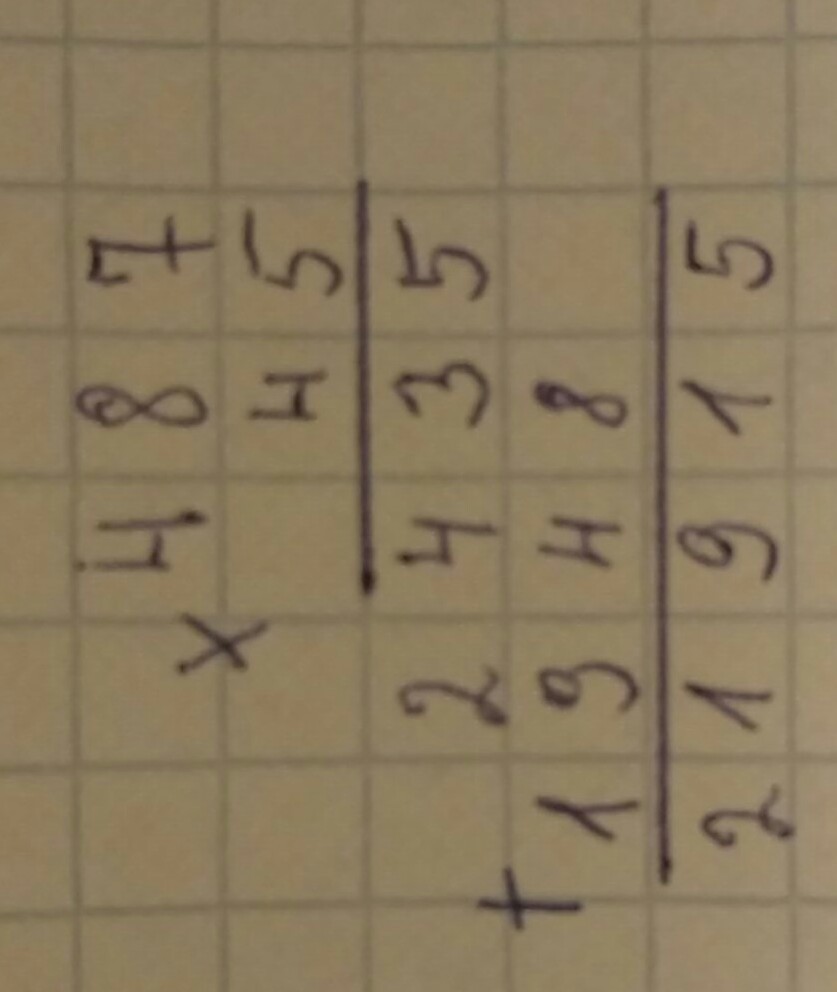 487
× 45
2435
+ 1948
21915